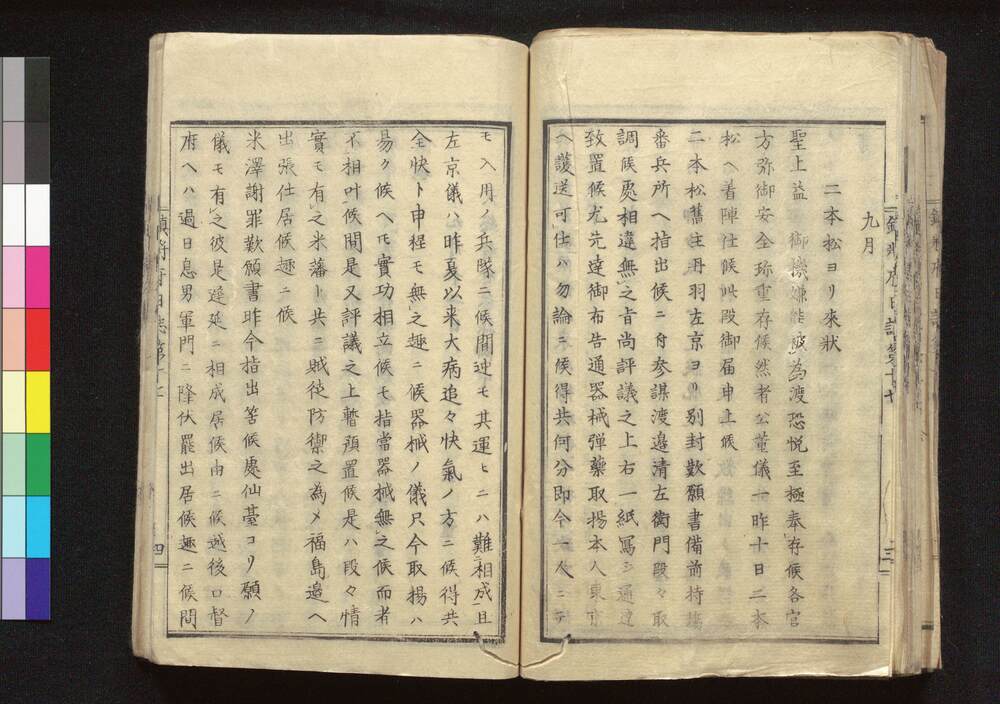 鎮将府日誌第十七
三
九月
二本松ヨリ來状
聖上益 御機嫌能被為渡恐悦至極奉存候各官
方弥御安全珎重存候然者公董儀一昨十日二本
松ヘ着陣仕候此段御届申上候
二本松舊主丹羽左京ヨリ別封歎願書備前持塲
番兵所ヘ指出候ニ付参謀渡邉清左衛門段々取
調候處相違無之旨尚評議之上右一紙寫シ通達
致置候尤先達御布告通器械弾藥取揚本人東京
ヘ護送可仕ハ勿論ニ候得共何分即今一人ニテ
モ入用ノ兵隊ニ候間迚モ其運ヒニハ難相成且
左京儀ハ昨夏以来大病追々快氣ノ方ニ候得共
全快ト申程モ無之趣ニ候器械ノ儀只今取揚ハ
易ク候ヘ𪜈實功相立候モ指當器械無之候而者
不相叶候間是又評議之上暫預置候是ハ段々情
實モ有之米藩ト共ニ賊徒防禦之為メ福島邉ヘ
出張仕居候趣ニ候
米澤謝罪歎願書昨今指出筈候處仙臺コリ願ノ
儀モ有之彼是遅延ニ相成居候由ニ候越後口督
府ヘハ過日息男軍門ニ降伏罷出居候趣ニ候間
鎮将府日誌第十七
四